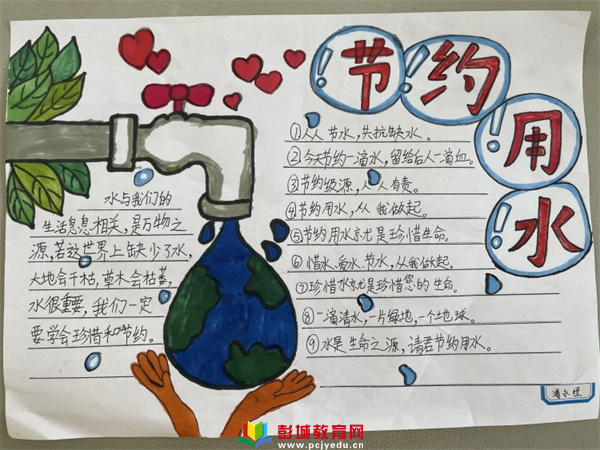 节约用水
水与我们的
生活息息相关,是万物之
源,若这世界上缺少了水,
大地会干枯,草木会枯萎,
水很重要,我们一定
要学会珍惜和节约。
①人人节水,共抗缺水。
②今天节约一滴水,留给后人一滴血。
③节约级源,人人有责。
④节约用水,从我做起。
⑤节约用水京尤是珍惜生命。
⑥惜水、爱水、节水,从我做起。
⑦珍惜水京尤是珍惜您的生命。
⑧一滴清水,一片绿地,一个地球。
⑨水是生命之源,请君节约用水。
彭城教育网
www.pcjyedu.cn